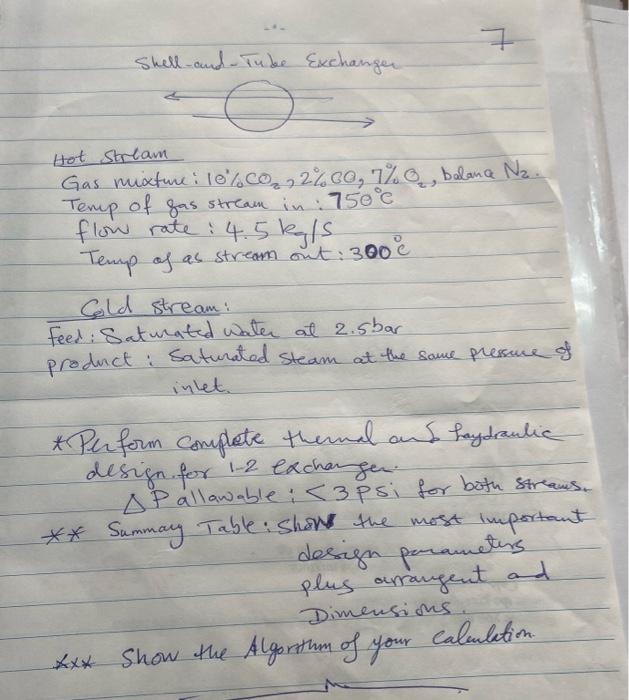 7
Shell-and-Tube Exchanger
Hot Stream
Gas mixture: 10% CO2, 2% CO, 7% O2, balance N2.
Temp of gas stream in : 750°C
flow rate : 4.5 kg/s
Temp of as stream out : 300°C
Cold stream:
Feed: Saturated water at 2.5bar
product : Saturated steam at the same pressure of
inlet.
* Perform complete thermal and haydraulic
design for 1-2 exchanger.
ΔP allawable : <3 psi for both streams.
** Summary Table: Show the most important
design parameters
plus arrangent and
Dimensions.
*** Show the Algorithm of your calculation